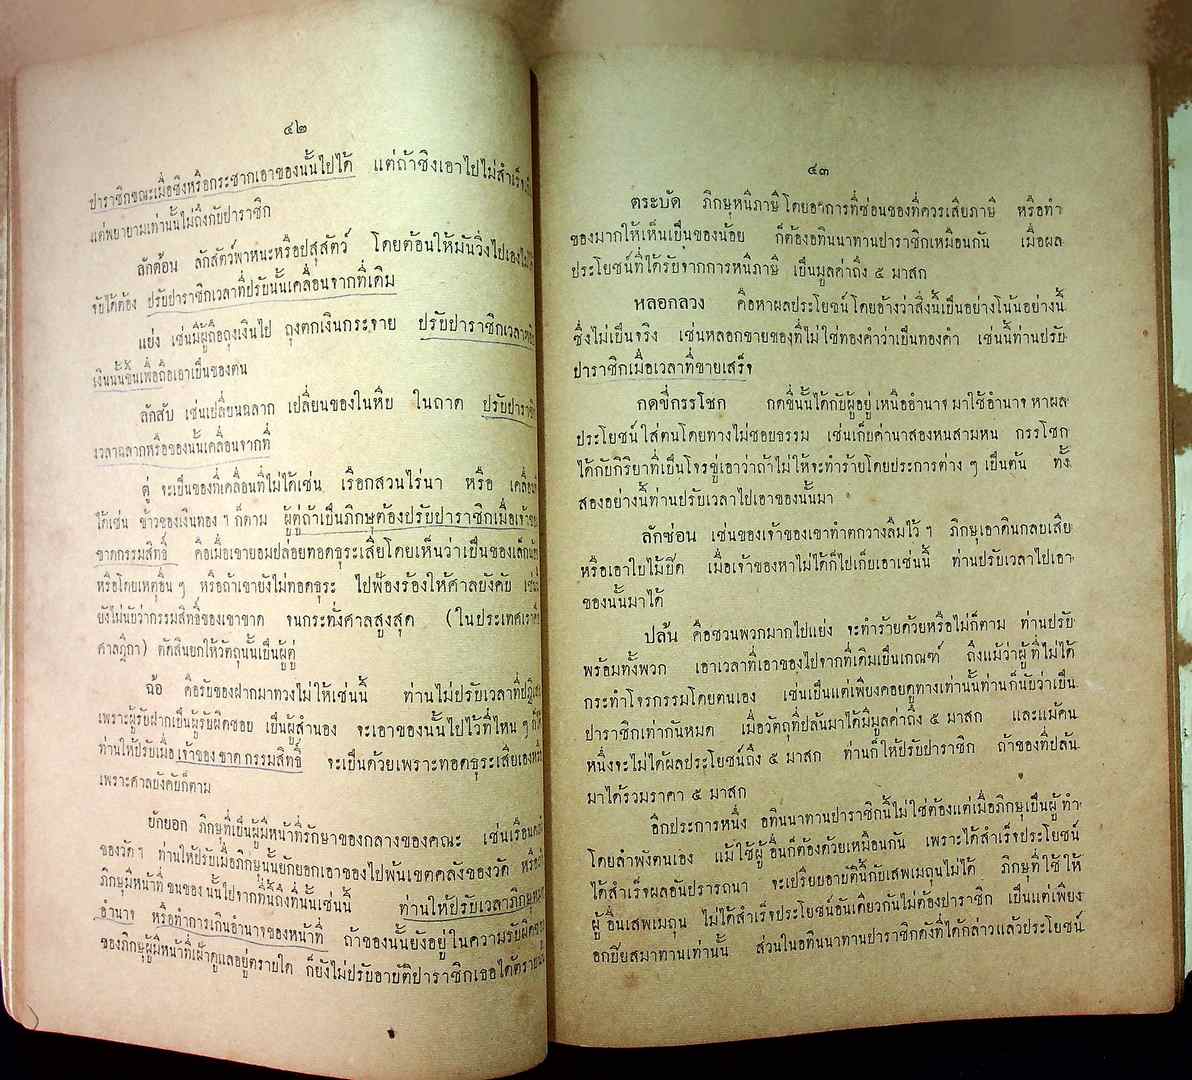 ๔๒
ปาราชิกขณะเมื่อชิงหรือกระชากเอาของนั้นไปได้ แต่ถ้าชิงเอาไปไม่สำเร็จ
แต่พยายามเท่านั้นไม่ถึงกับปาราชิก
ลักต้อน ลักสัตว์พาหนะหรือปสุสัตว์ โดยต้อนให้มันวิ่งไปเอง
จับได้ต้อง ปรับปาราชิกเวลาที่ปรับนั้นเคลื่อนจากที่เดิม
แย่ง เช่นมีผู้ถือถุงเงินไป ถุงตกเงินกระจาย ปรับปาราชิกเวลา
เงินนั้นขึ้นเพื่อถือเอาเป็นของตน
ลักสับ เช่นเปลี่ยนฉลาก เปลี่ยนของในหีบ ในถาด ปรับปาราชิก
เวลาฉลากหรือของนั้นเคลื่อนจากที่
ตู่ จะเป็นของที่เคลื่อนที่ไม่ได้เช่น เรือกสวนไร่นา หรือ เคลื่อนที่
ได้เช่น ข้าวของเงินทอง ฯ ก็ตาม ผู้ตู่ถ้าเป็นภิกษุต้องปรับปาราชิกเมื่อเจ้าของ
ขาดกรรมสิทธิ์ คือเมื่อเขายอมปล่อยทอดธุระเสียโดยเห็นว่าเป็นของเล็กน้อย
หรือโดยเหตุอื่น ๆ หรือถ้าเขายังไม่ทอดธุระ ไปฟ้องร้องให้ศาลบังคับ เช่น
ยังไม่นับว่ากรรมสิทธิ์ของเขาขาด จนกระทั่งศาลสูงสุด (ในประเทศเราคือ
ศาลฎีกา) ตัดสินยกให้วัตถุนั้นเป็นผู้ตู่
ฉ้อ คือรับของฝากมาทวงไม่ให้เช่นนี้ ท่านไม่ปรับเวลาที่ปฏิเสธ
เพราะผู้รับฝากเป็นผู้รับผิดชอบ เป็นผู้สำนอง จะเอาของนั้นไปไว้ที่ไหน ๆ ก็ได้
ท่านให้ปรับเมื่อ เจ้าของ ขาด กรรมสิทธิ์ จะเป็นด้วยเพราะทอดธุระเสียเองหรือ
เพราะศาลบังคับก็ตาม
ยักยอก ภิกษุที่เป็นผู้มีหน้าที่รักษาของกลางของคณะ เช่นเรือนคลัง
ของวัด ฯ ท่านให้ปรับเมื่อภิกษุนั้นยักยอกเอาของไปพ้นเขตคลังของวัด
ภิกษุมีหน้าที่ขนของนั้นไปจากที่นี้ถึงที่นั้นเช่นนี้ ท่านให้ปรับเวลาภิกษุ
อำนาจ หรือทำการเกินอำนาจของหน้าที่ ถ้าของนั้นยังอยู่ในความรับผิดชอบ
ของภิกษุผู้มีหน้าที่เฝ้าดูแลอยู่ตราบใด ก็ยังไม่ปรับอาบัติปาราชิกเธอได้ตราบนั้น
๔๓
ตระบัด ภิกษุหนีภาษีโดยอาการที่ซ่อนของที่ควรเสียภาษี หรือทำ
ของมากให้เห็นเป็นของน้อย ก็ต้องอทินนาทานปาราชิกเหมือนกัน เมื่อผล
ประโยชน์ที่ได้รับจากการหนีภาษี เป็นมูลค่าถึง ๕ มาสก
หลอกลวง คือหาผลประโยชน์โดยอ้างว่าสิ่งนี้เป็นอย่างโน้นอย่างนี้
ซึ่งไม่เป็นจริง เช่นหลอกขายของที่ไม่ใช่ทองคำว่าเป็นทองคำ เช่นนี้ท่านปรับ
ปาราชิกเมื่อเวลาที่ขายเสร็จ
กดขี่กรรโชก กดขี่นั้นได้กับผู้อยู่เหนืออำนาจมาใช้อำนาจหาผล
ประโยชน์ใส่ตนโดยทางไม่ชอบธรรม เช่นเก็บค่านาสองหนสามหน กรรโชก
ได้กับกิริยาที่เป็นโจรขู่เอาว่าถ้าไม่ให้จะทำร้ายโดยประการต่าง ๆ เป็นต้น ทั้ง
สองอย่างนี้ท่านปรับเวลาไปเอาของนั้นมา
ลักซ่อน เช่นของเจ้าของเขาทำตกวางลืมไว้ ฯ ภิกษุเอาดินกลบเสีย
หรือเอาใบไม้ปิด เมื่อเจ้าของหาไม่ได้ก็ไปเก็บเอาเช่นนี้ ท่านปรับเวลาไปเอา
ของนั้นมาได้
ปล้น คือชวนพวกมากไปแย่ง จะทำร้ายด้วยหรือไม่ก็ตาม ท่านปรับ
พร้อมทั้งพวก เอาเวลาที่เอาของไปจากที่เดิมเป็นเกณฑ์ ถึงแม้ว่าผู้ที่ไม่ได้
กระทำโจรกรรมโดยตนเอง เช่นเป็นแต่เพียงคอยดูทางเท่านั้นท่านก็นับว่าเป็น
ปาราชิกเท่ากันหมด เมื่อวัตถุที่ปล้นมาได้มีมูลค่าถึง ๕ มาสก และแม้คน
หนึ่งจะไม่ได้ผลประโยชน์ถึง ๕ มาสก ท่านก็ให้ปรับปาราชิก ถ้าของที่ปล้น
มาได้รวมราคา ๕ มาสก
อีกประการหนึ่ง อทินนาทานปาราชิกนี้ไม่ใช่ต้องแต่เมื่อภิกษุเป็นผู้ทำ
โดยลำพังตนเอง แม้ใช้ผู้อื่นก็ต้องด้วยเหมือนกัน เพราะได้สำเร็จประโยชน์
ได้สำเร็จผลอันปรารถนา จะเปรียบอาบัตินี้กับเสพเมถุนไม่ได้ ภิกษุที่ใช้ให้
ผู้อื่นเสพเมถุน ไม่ได้สำเร็จประโยชน์อันเดียวกันไม่ต้องปาราชิก เป็นแต่เพียง
อกปิยสมาทานเท่านั้น ส่วนในอทินนาทานปาราชิกดังที่ได้กล่าวแล้วประโยชน์